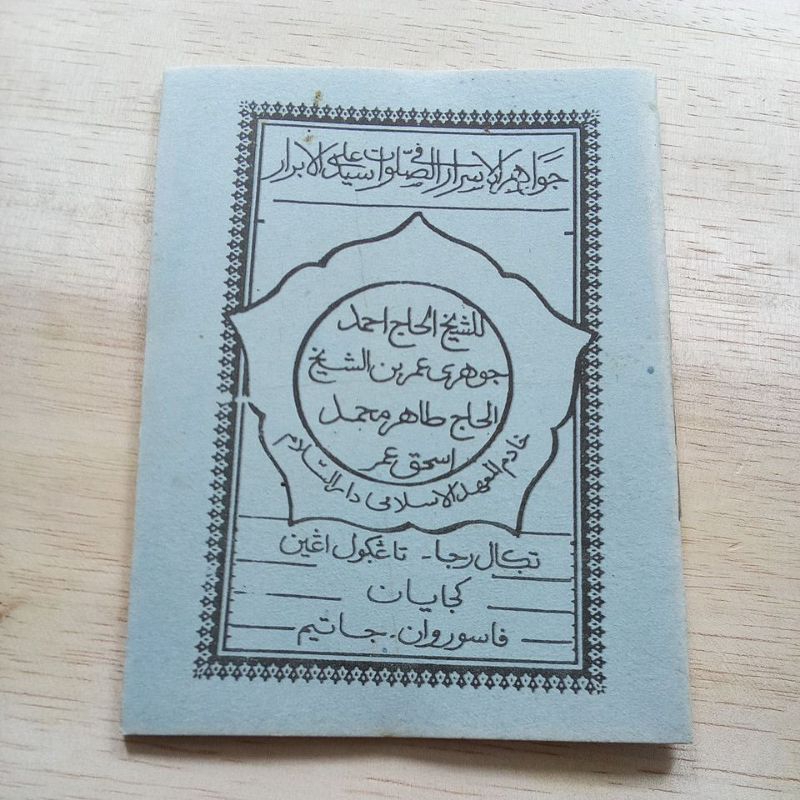 جواهر الاسرار في الصلوات على سيد الابرار
للشيخ الحاج احمد
جوهرى عمر بن الشيخ
الحاج طاهر محمد
اسحق عمر
خادم المعهد الاسلامى دار السلام
تݢال رجا - تاڠݢول اڠين
كجايان
فاسوروان - جاتيم